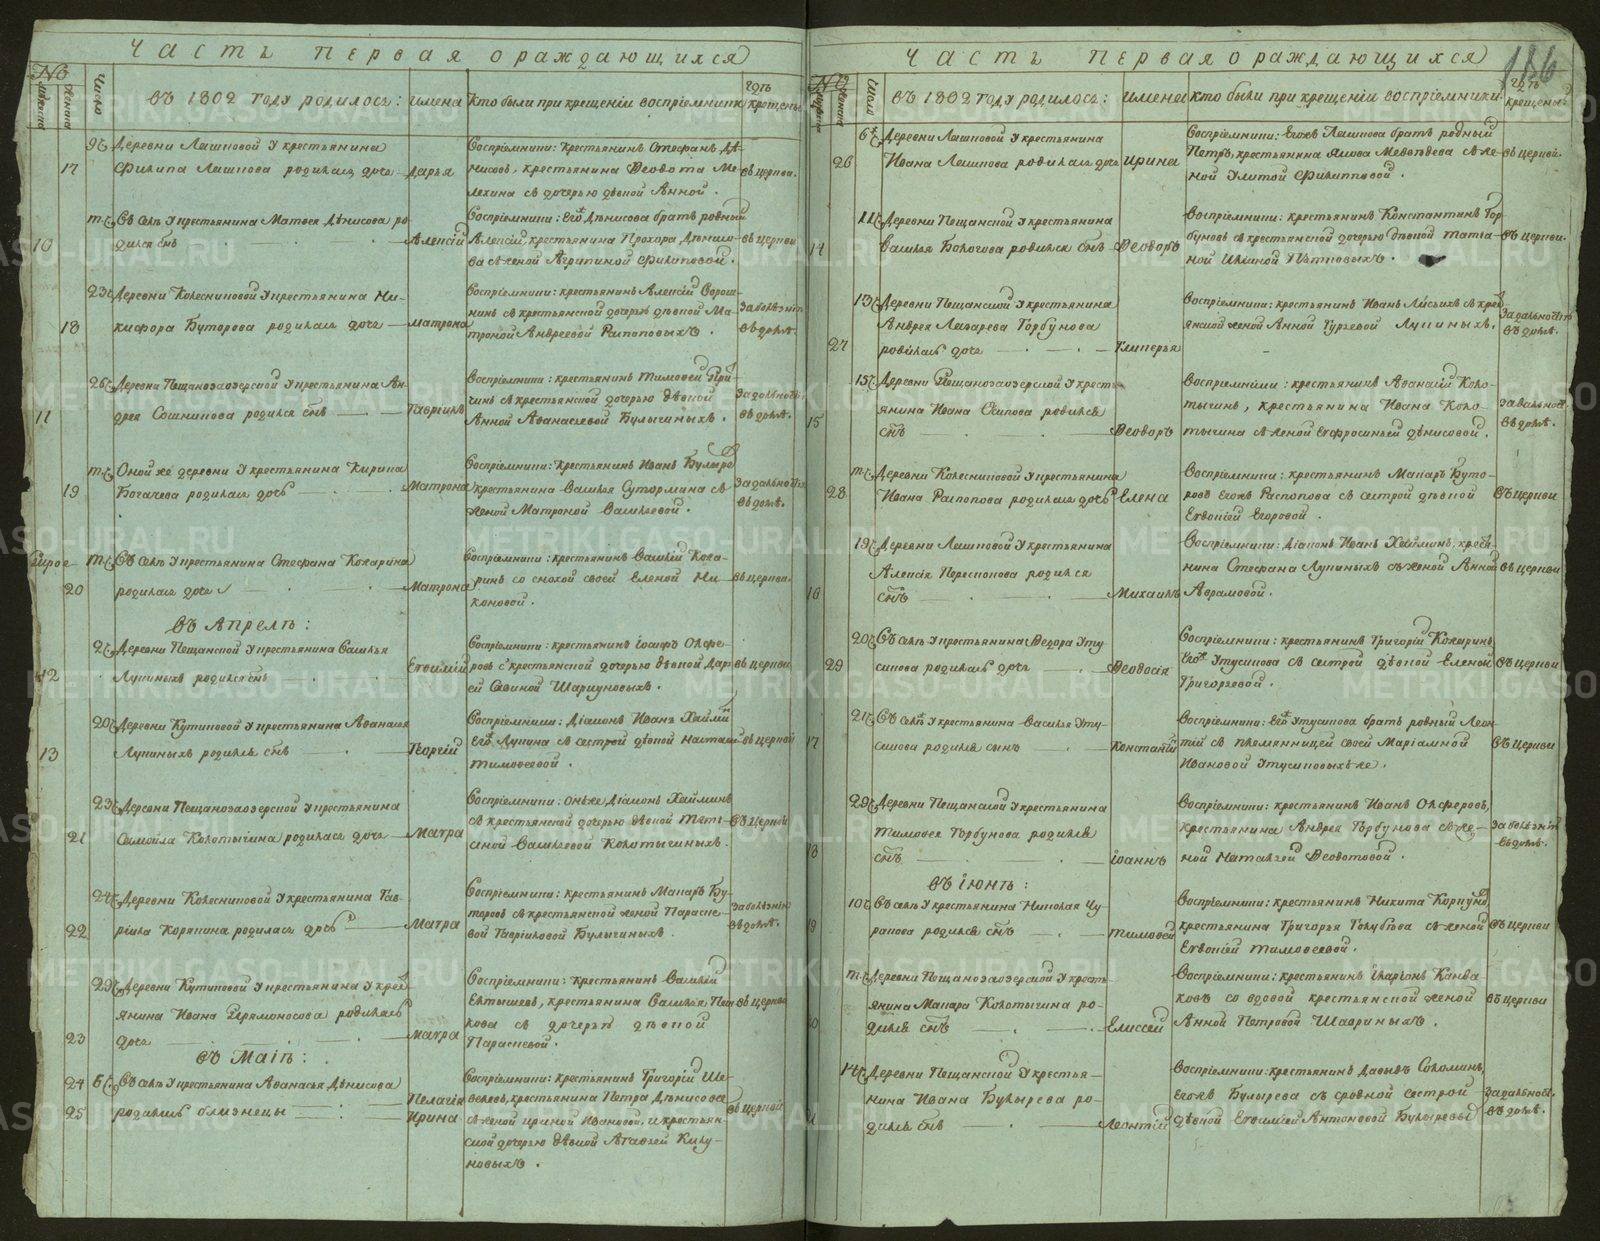 Часть первая о раждающихся
№
Число
въ 1802 году родилось:
имена
Кто были при крещеніи воспріемники
гдѣ крещены
17
9г
Деревни Лашповой у крестьянина
Филипа Лашпова родилась дочь
Дарья
Воспріемники: крестьянинъ Стефанъ Дѣ-
нисовъ, крестьянина Ѳедота Ме-
лехина съ дочерью дѣвкой Анной.
въ церкви.
10
т.г.
Въ селѣ у крестьянина Матвея Дѣнисова ро-
дился снъ
Алексій
Воспріемники: его Дѣнисова братъ родный
Алексій, крестьянина Прохора Дѣнисо-
ва съ женой Агрипиной Филиповой.
въ церкви
18
23г
Деревни Колесниковой у крестьянина Ни-
кифора Буторова родилась дочь
Матрона
Воспріемники: крестьянинъ Алексій Сорош-
нинъ съ крестьянской дочерью дѣвкой Ма-
троной Андреевой Распоповыхъ.
въ домѣ.
11
26г
Деревни Пещанозаозерской у крестьянина Ан-
дрея Сошникова родился снъ
Гавріилъ
Воспріемники: крестьянинъ Тимоѳей
чинъ съ крестьянской дочерью дѣвкой
Анной Аѳанасьевой Булычиныхъ.
въ домѣ.
19
т.г.
Оной же деревни у крестьянина Кирила
Богачева родилась дочь
Матрона
Воспріемники: крестьянинъ Иванъ
крестьянина Василья Сутормина съ
женой Матроной Васильевой.
въ домѣ.
20
т.г.
Въ селѣ у крестьянина Стефана Кокарина
родилась дочь
Матрона
Воспріемники: крестьянинъ Василій Кока-
ринъ со снохой своей Еленой Ни-
коновой.
въ церкви.
Въ Апрелѣ:
12
2г
Деревни Пещанской у крестьянина Василья
Лупиныхъ родился снъ
Евѳимій
Воспріемники: крестьянинъ Іосифъ Олфе-
ровъ с крестьянской дочерью дѣвкой Дарь-
ей Савиной Шаркуновыхъ.
въ церкви
13
20г
Деревни Кутиковой у крестьянина Аѳанасья
Лупиныхъ родился снъ
Георгій
Воспріемники: Діаконъ Иванъ Хаймин
Его Лупина съ сестрой дѣвкой Настасьей
Тимоѳеевой.
въ церкви
21
23г
Деревни Пещанозаозерской у крестьянина
Самойла Колотыгина родилась дочь
Мавра
Воспріемники: онъ же Діаконъ Хайминъ
съ крестьянской дочерью дѣвкой Тать-
яной Васильевой Колотыгиныхъ.
въ церкви
22
24г
Деревни Колесниковой у крестьянина Гав-
ріила Корякина родилась дочь
Мавра
Воспріемники: крестьянинъ Макаръ Бу-
торовъ съ крестьянской женой Параске-
вой Гавріиловой Булычиныхъ.
за болѣзнію
въ домѣ.
23
29г
Деревни Кутиковой у крестьянина у крест
янина Ивана Прямоносова родилась
дочь
Мавра
Воспріемники: крестьянинъ Василій
Евтышевъ, крестьянина Василья
кова съ дочерью дѣвкой
Параскевой.
въ церкви
въ Маіѣ:
24
25
6г
Въ селѣ у крестьянина Аѳанасья Дѣнисова
родились близнецы
Пелагія
Ирина
Воспріемники: крестьянинъ Григорій Ше-
велевъ, крестьянина Петра Дѣнисова
съ женой Ириной Ивановой, и крестьян-
ской дочерью дѣвкой Агаѳьей Кику-
новыхъ.
въ церкви
Часть первая о раждающихся
186
№
Число
въ 1802 году родилось:
имена
Кто были при крещеніи воспріемники
гдѣ крещены
26
6г
Деревни Лашповой у крестьянина
Ивана Лашпова родилась дочь
Ирина
Воспріемники: Егожъ Лашпова братъ родный
Петръ, крестьянина Якова Медвѣдева съ же-
ной Улитой Филипповой.
въ церкви.
14
11г
Деревни Пещанской у крестьянина
Василья Болотова родился снъ
Ѳеодоръ
Воспріемники: крестьянинъ Константинъ Гор
буновъ съ крестьянской дочерью дѣвкой Татья-
ной Ильиной Пѣтковыхъ.
въ церкви.
27
13г
Деревни Пещанской у крестьянина
Андрея Лазарева Горбунова
родилась дочь
Гликерья
Воспріемники: крестьянинъ Иванъ Лисьихъ съ крес
янской женой Анной Гурьевой Лупиныхъ.
въ домѣ.
15
15г
Деревни Пещанозаозерской у кресть
янина Ивана Осипова родился
снъ
Ѳеодоръ
Воспріемники: крестьянинъ Аѳанасій Коло-
тыгинъ, крестьянина Ивана Коло-
тыгина съ женой Евфросиньей Дѣнисовой.
въ домѣ.
28
т.г.
Деревни Колесниковой у крестьянина
Ивана Распопова родилась дочь
Елена
Воспріемники: крестьянинъ Макаръ Буто-
ровъ Егожъ Распопова съ сестрой дѣвкой
Евгеніей Егоровой.
въ церкви
16
19г
Деревни Лашповой у крестьянина
Алексія Переспопова родился
снъ
Михаилъ
Воспріемники: Діаконъ Иванъ Хайминъ, кресть
янина Стефана Лупиныхъ съ женой Анной
Аврамовой.
въ церкви
29
20г
Въ селѣ у крестьянина Ѳедора Уту
сикова родилась дочь
Ѳеодосія
Воспріемники: крестьянинъ Григорій Кокаринъ,
его Утусикова съ сестрой дѣвкой Еленой
Григорьевой.
въ церкви
17
21г
Въ селѣ у крестьянина Василья Уту
сикова родился сынъ
Константинъ
Воспріемники: его Утусикова братъ родный Леон
тій съ племянницей своей Маріамной
Ивановой Утусиковыхъ же.
въ церкви
18
29г
Деревни Пещанской у крестьянина
Тимоѳея Горбунова родился
снъ
Іоаннъ
Воспріемники: крестьянинъ Иванъ Олферовъ,
крестьянина Андрея Горбунова съ же-
ной Натальей Ѳедотовой.
за болѣзнію
въ домѣ.
въ Іюнѣ:
19
10г
Въ селѣ у крестьянина Николая Чу-
ракова родился снъ
Тимоѳей
Воспріемники: крестьянинъ Никита Коркунов
крестьянина Григорья Голубцова съ женой
Евгеніей Тимоѳеевой.
въ церкви
20
т.г.
Деревни Пещанозаозерской у кресть
янина Макара Колотыгина ро-
дился снъ
Елиссей
Воспріемники: крестьянинъ Иларіонъ Канда-
ковъ со вдовой крестьянской женой
Анной Петровой Шавриныхъ.
въ церкви
14г
Деревни Пещанской у крестья-
нина Ивана Булырева ро-
дился снъ
Леонтій
Воспріемники: крестьянинъ Давыдъ Соломинъ,
Егожъ Булырева съ родной сестрой
дѣвкой Евѳиміей Антоновой Булыревы
въ домѣ.
METRIKI.GASO-URAL.RU